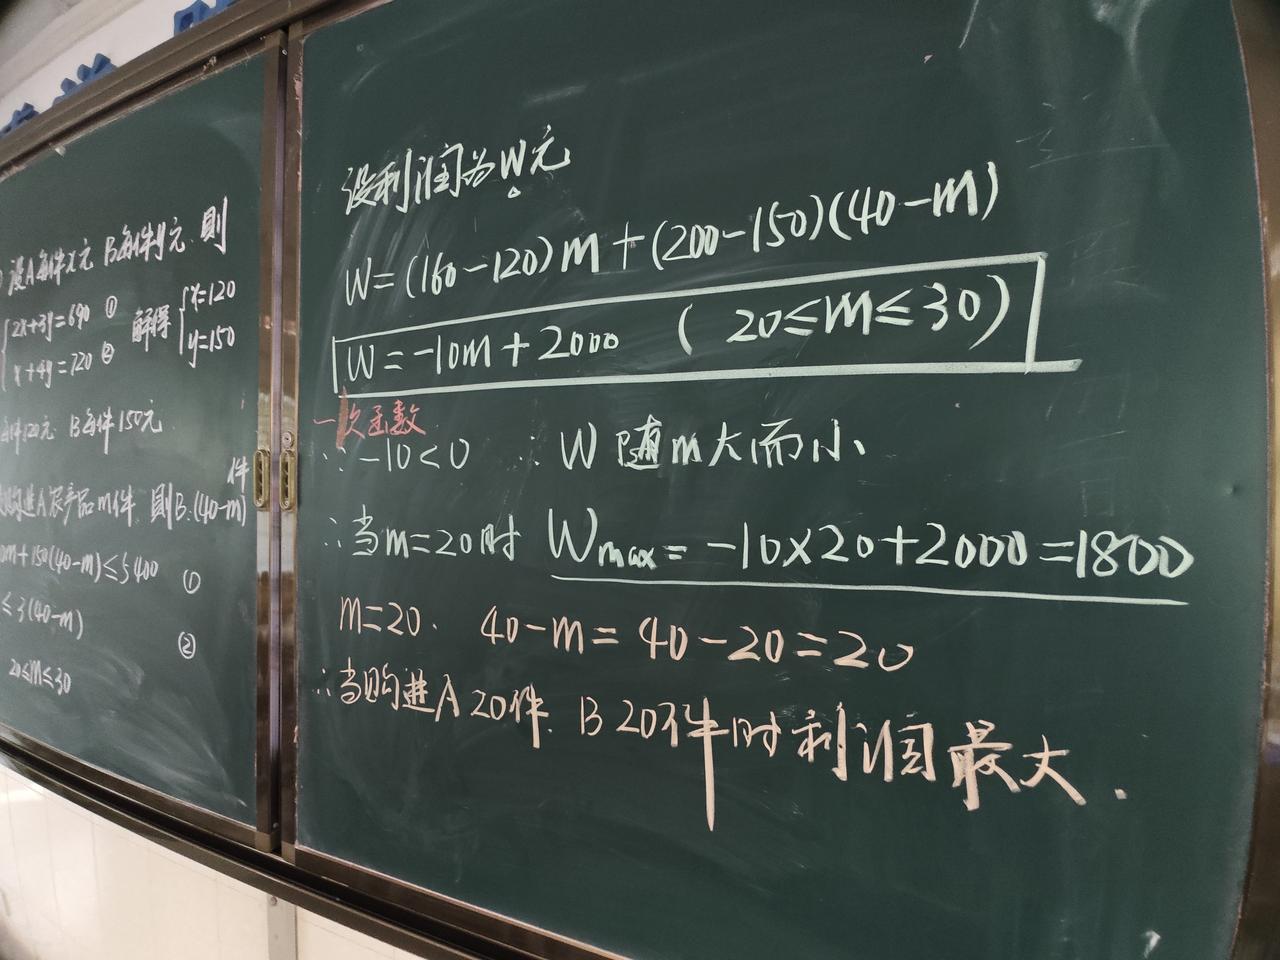 设A每件x元 B每件y元, 则
2x+3y=690 ①
x+4y=720 ②
解得
x=120
y=150
每件120元 B每件150元
购进A农产品m件, 则B:(40-m)件
0m+150(40-m)≤5400 ①
≤3(40-m) ②
20≤m≤30
设利润为W元
W=(160-120)m+(200-150)(40-m)
W=-10m+2000 (20≤m≤30)
一次函数
∵-10<0 ∴W随m大而小、
∴当m=20时 Wmax=-10×20+2000=1800
m=20. 40-m=40-20=20
∴当购进A 20件. B 20件时利润最大.